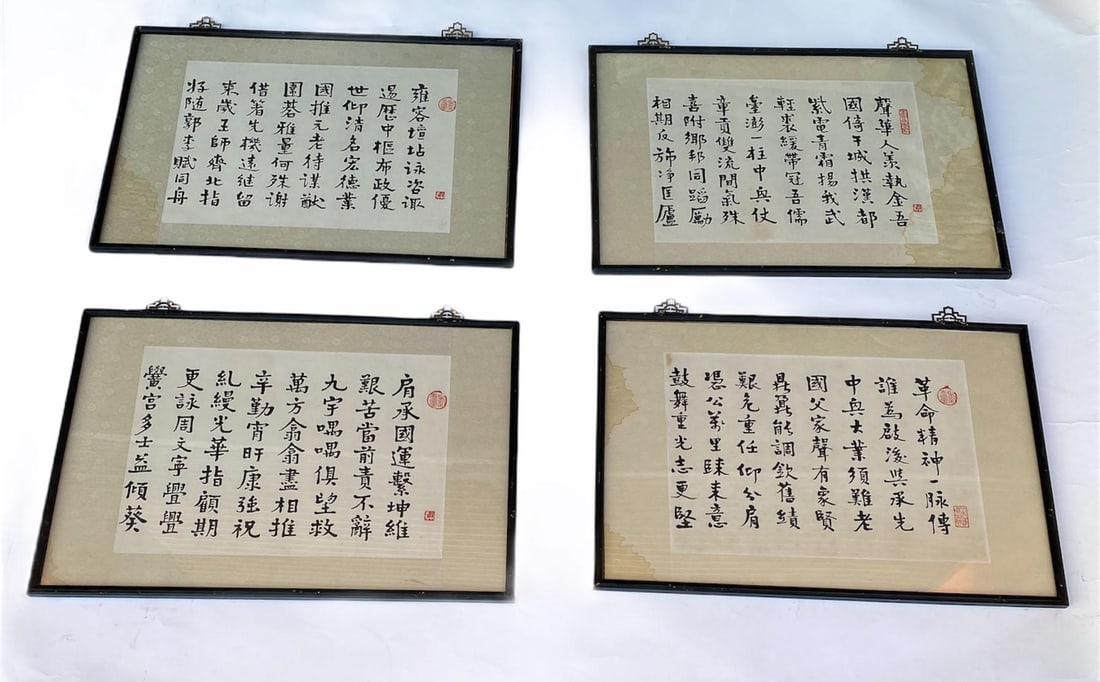 雍容壇坫詠咨諏
歷中樞布政優
世仰清名宏德業
國推元老待謀猷
圍碁雅量何殊謝
借箸先機遠繼留
來歲王師齊北指
好随郭李賦同舟
聲華人羨執金吾
國倚干城拱漢都
紫電青霜揚我武
輕裘緩帶冠吾儒
臺澎一柱中興仗
章貢雙流間氣殊
喜附鄉邦同蹈勵
相期反斾净匡廬
肩承國運繫坤維
艱苦當前責不辭
九宇喁喁俱望救
萬方翕翕盡相推
辛勤宵旰康強祝
糺縵光華指顧期
更詠周文寧亹亹
黌宮多士益傾葵
革命精神一脉傳
誰為啟後與承先
中興大業須難老
國父家聲有象賢
鼎鼐能調欽舊績
艱危重任仰分肩
憑公萬里歸來意
鼓舞重光志更堅